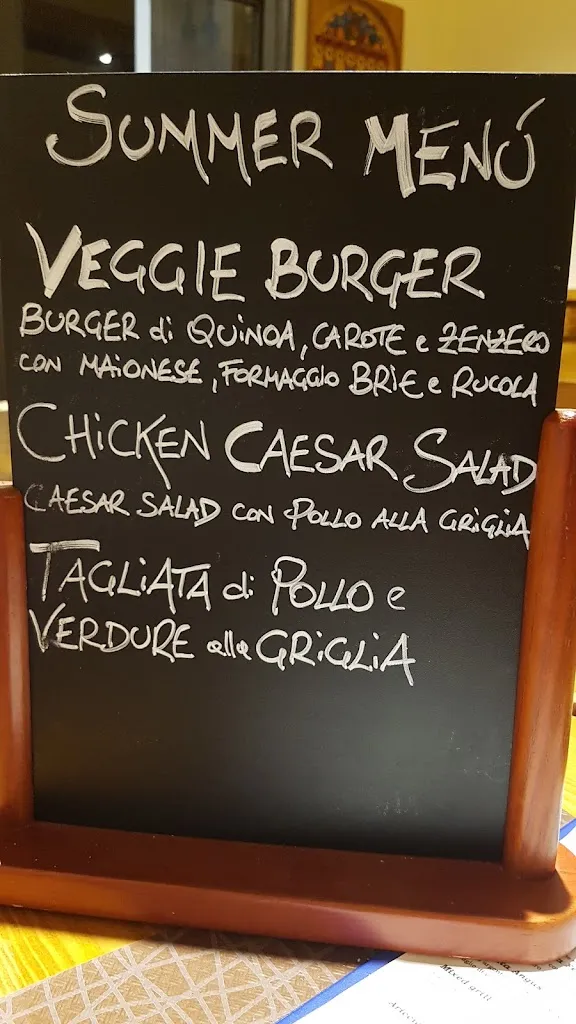 SUMMER MENÚ
VEGGIE BURGER
BURGER di QUINOA, CAROTE e ZENZERO
CON MAIONESE, FORMAGGIO BRIE e RUCOLA
CHICKEN CAESAR SALAD
CAESAR SALAD CON POLLO ALLA GRIGLIA
TAGLIATA di POLLO e
VERDURE alla GRIGLIA
Angus
Mixed grill